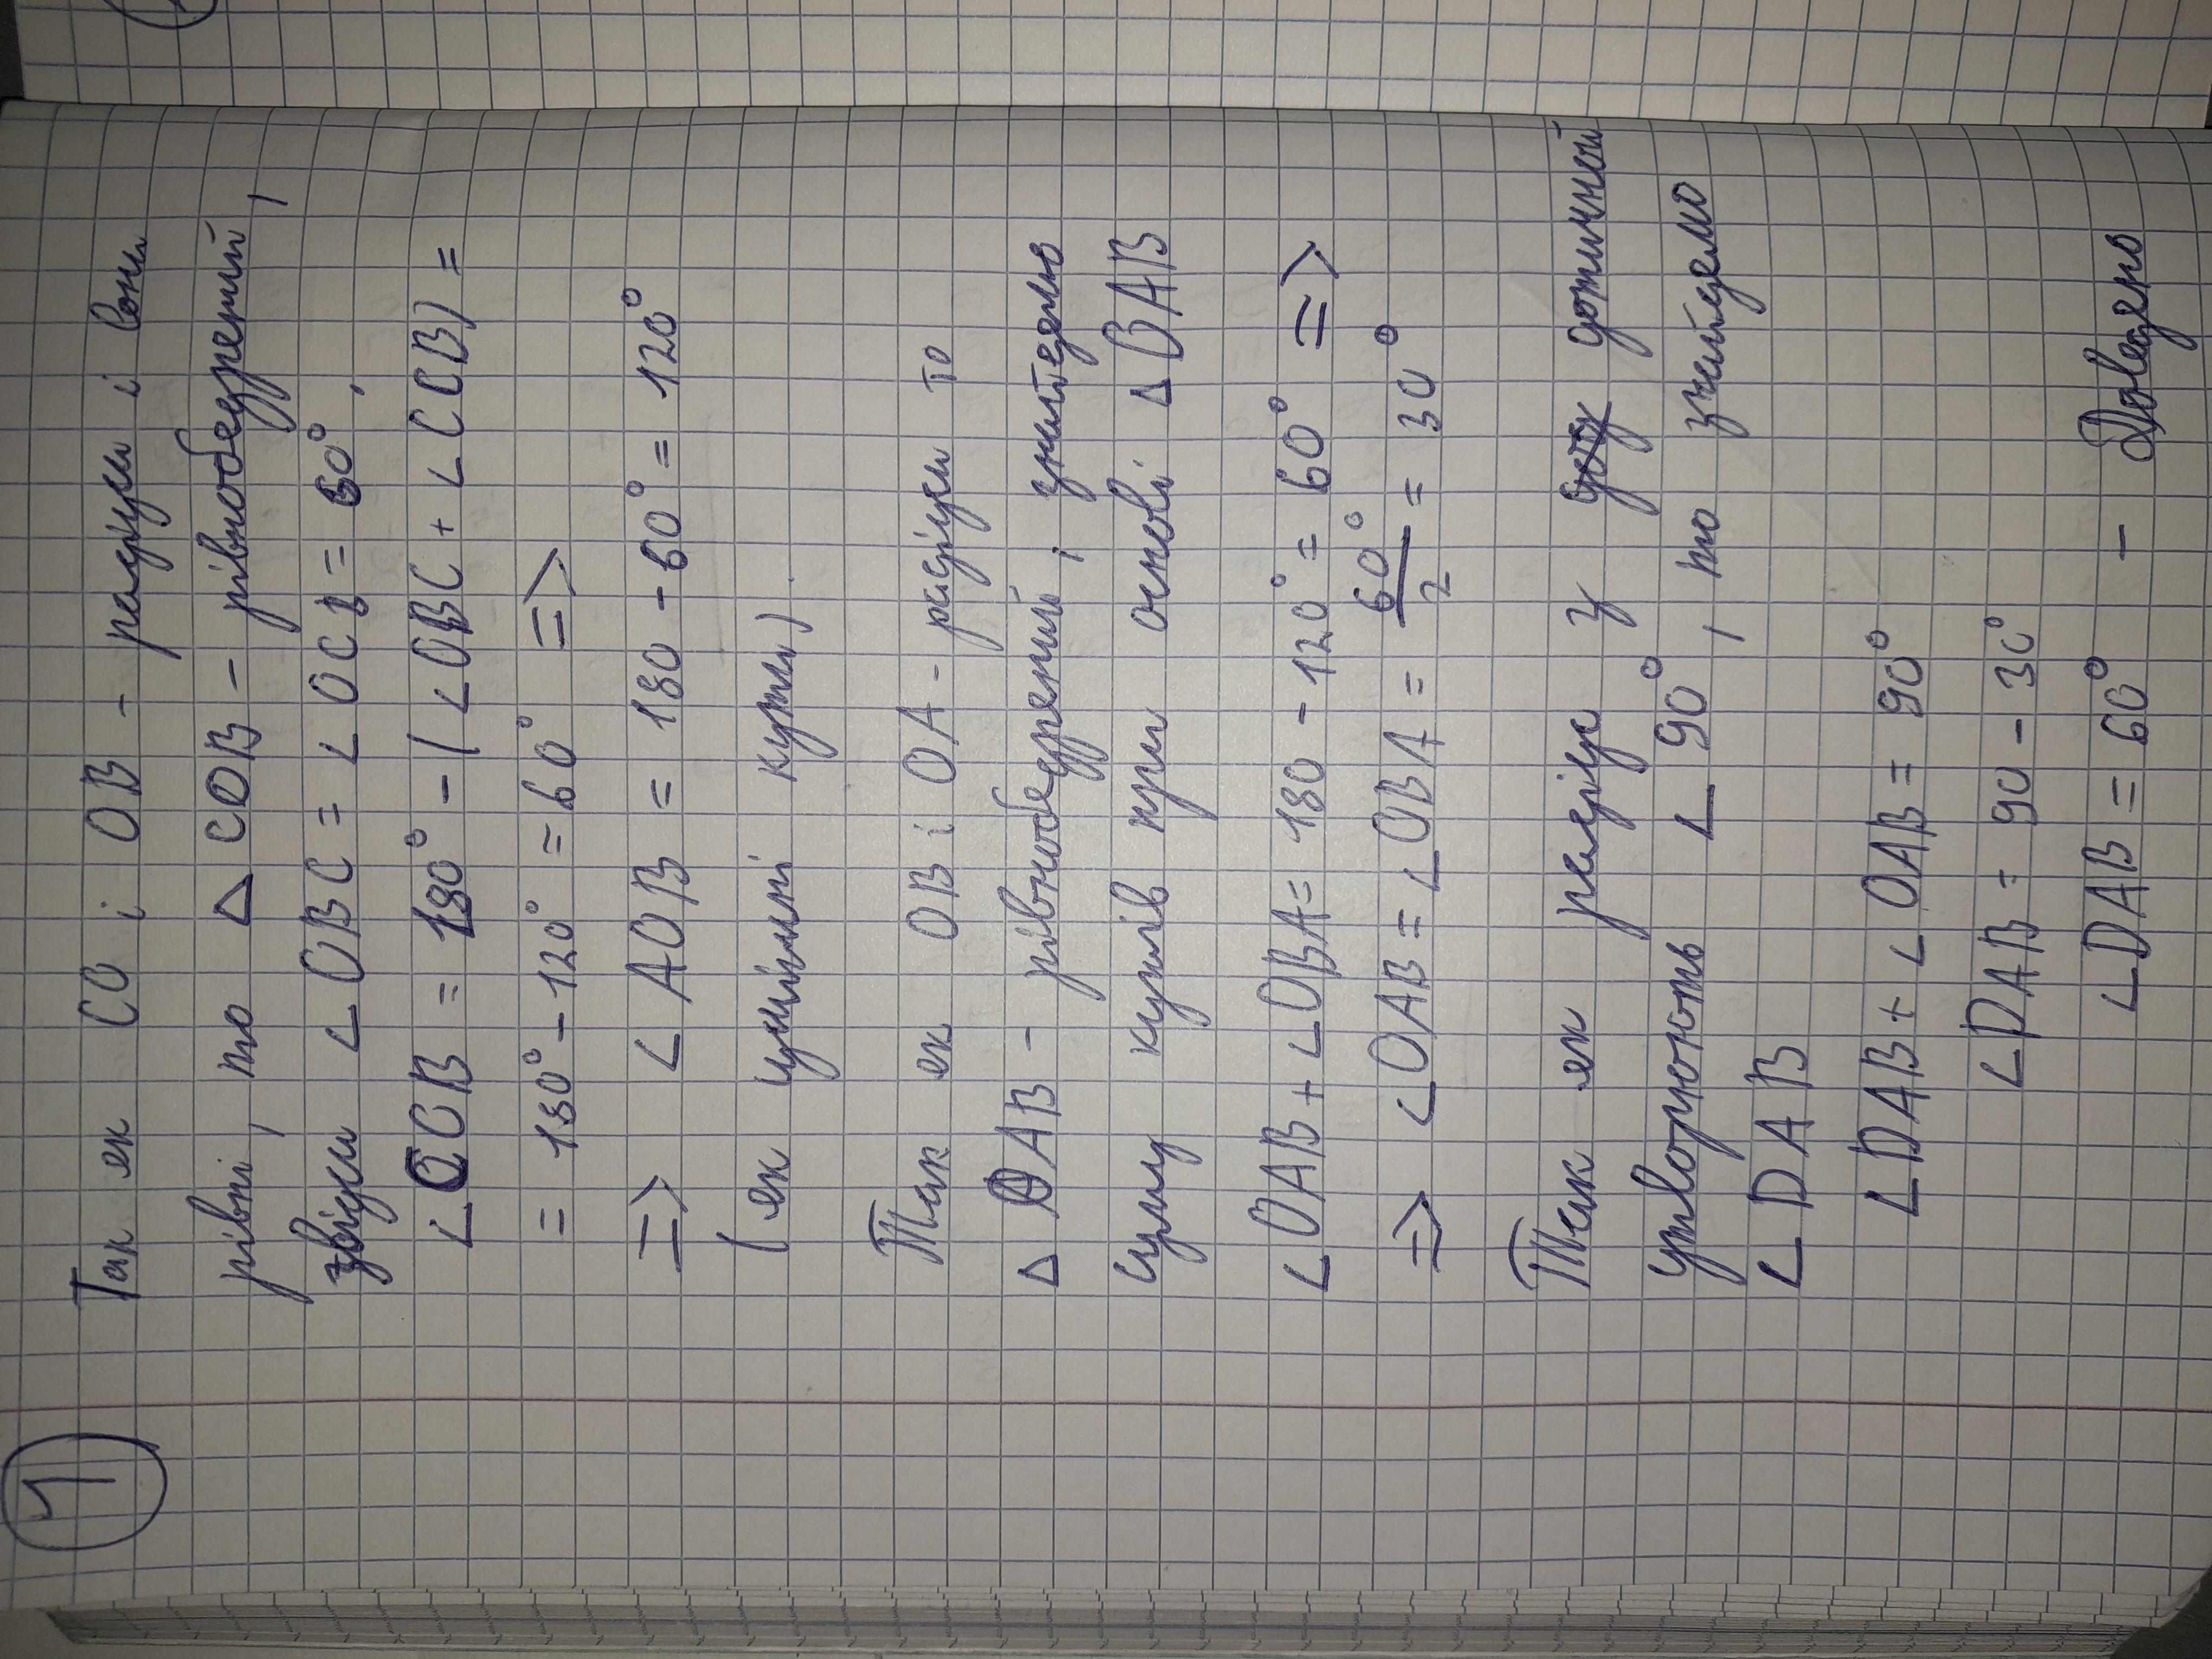 1
Так як CO і OB - радіуси і вони
рівні, то ΔCOB - рівнобедрений,
звідси ∠OBC = ∠OCB = 60°,
∠OCB = 180° - (∠OBC + ∠CCB) =
= 180° - 120° = 60° =>
=> ∠AOB = 180 - 60° = 120°
(як суміжні кути).
Так як OB і OA - радіуси то
ΔOAB - рівнобедрений, знайдемо
суму кутів при основі ΔOAB
∠OAB + ∠OBA = 180 - 120° = 60° =>
=> ∠OAB = ∠OBA = 60°/2 = 30°
Так як радіус у дотичній
утворюють ∠90°, то знайдемо
∠DAB
∠DAB + ∠OAB = 90°
∠DAB = 90 - 30°
∠DAB = 60° - Доведено